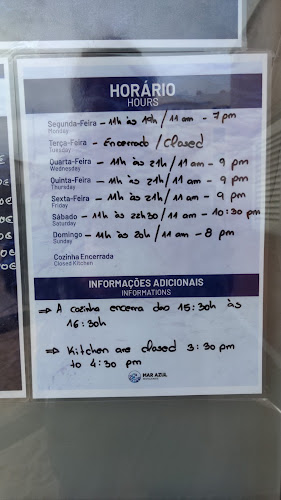 HORÁRIO
HOURS
Segunda-Feira – 11h às 19h / 11 am – 7 pm
Monday
Terça-Feira – Encerrado / Closed
Tuesday
Quarta-Feira – 11h às 21h / 11 am – 9 pm
Wednesday
Quinta-Feira – 11h às 21h / 11 am – 9 pm
Thursday
Sexta-Feira – 11h às 21h / 11 am – 9 pm
Friday
Sábado – 11h às 22h30 / 11 am – 10:30 pm
Saturday
Domingo – 11h às 20h / 11 am – 8 pm
Sunday
Cozinha Encerrada
Closed Kitchen
INFORMAÇÕES ADICIONAIS
INFORMATIONS
⇒ A cozinha encerra das 15:30h às
16:30h
⇒ Kitchen are closed 3:30 pm
to 4:30 pm
MAR AZUL